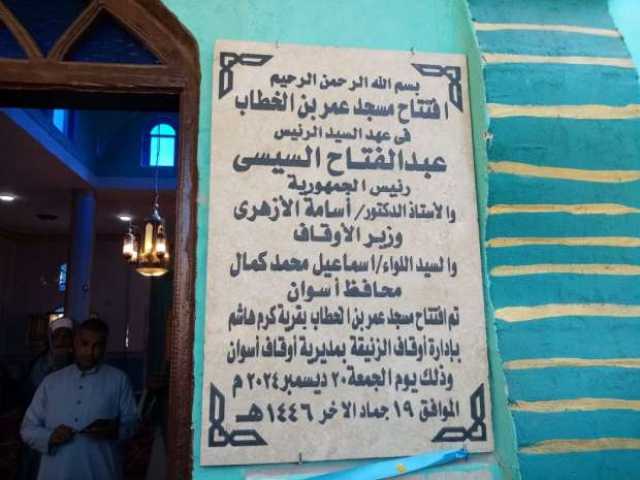 بسم الله الرحمن الرحيم
افتتاح مسجد عمر بن الخطاب
فى عهد السيد الرئيس
عبدالفتاح السيسى
رئيس الجمهورية
والأستاذ الدكتور/ أسامة الأزهرى
وزير الأوقاف
والسيد اللواء/ اسماعيل محمد كمال
محافظ أسوان
تم افتتاح مسجد عمر بن الخطاب بقرية كرم هاشم
بإدارة أوقاف الزنيقة بمديرية أوقاف أسوان
وذلك يوم الجمعة ٢٠ ديسمبر ٢٠٢٤ م
الموافق ١٩ جماد الاخر ١٤٤٦هـ